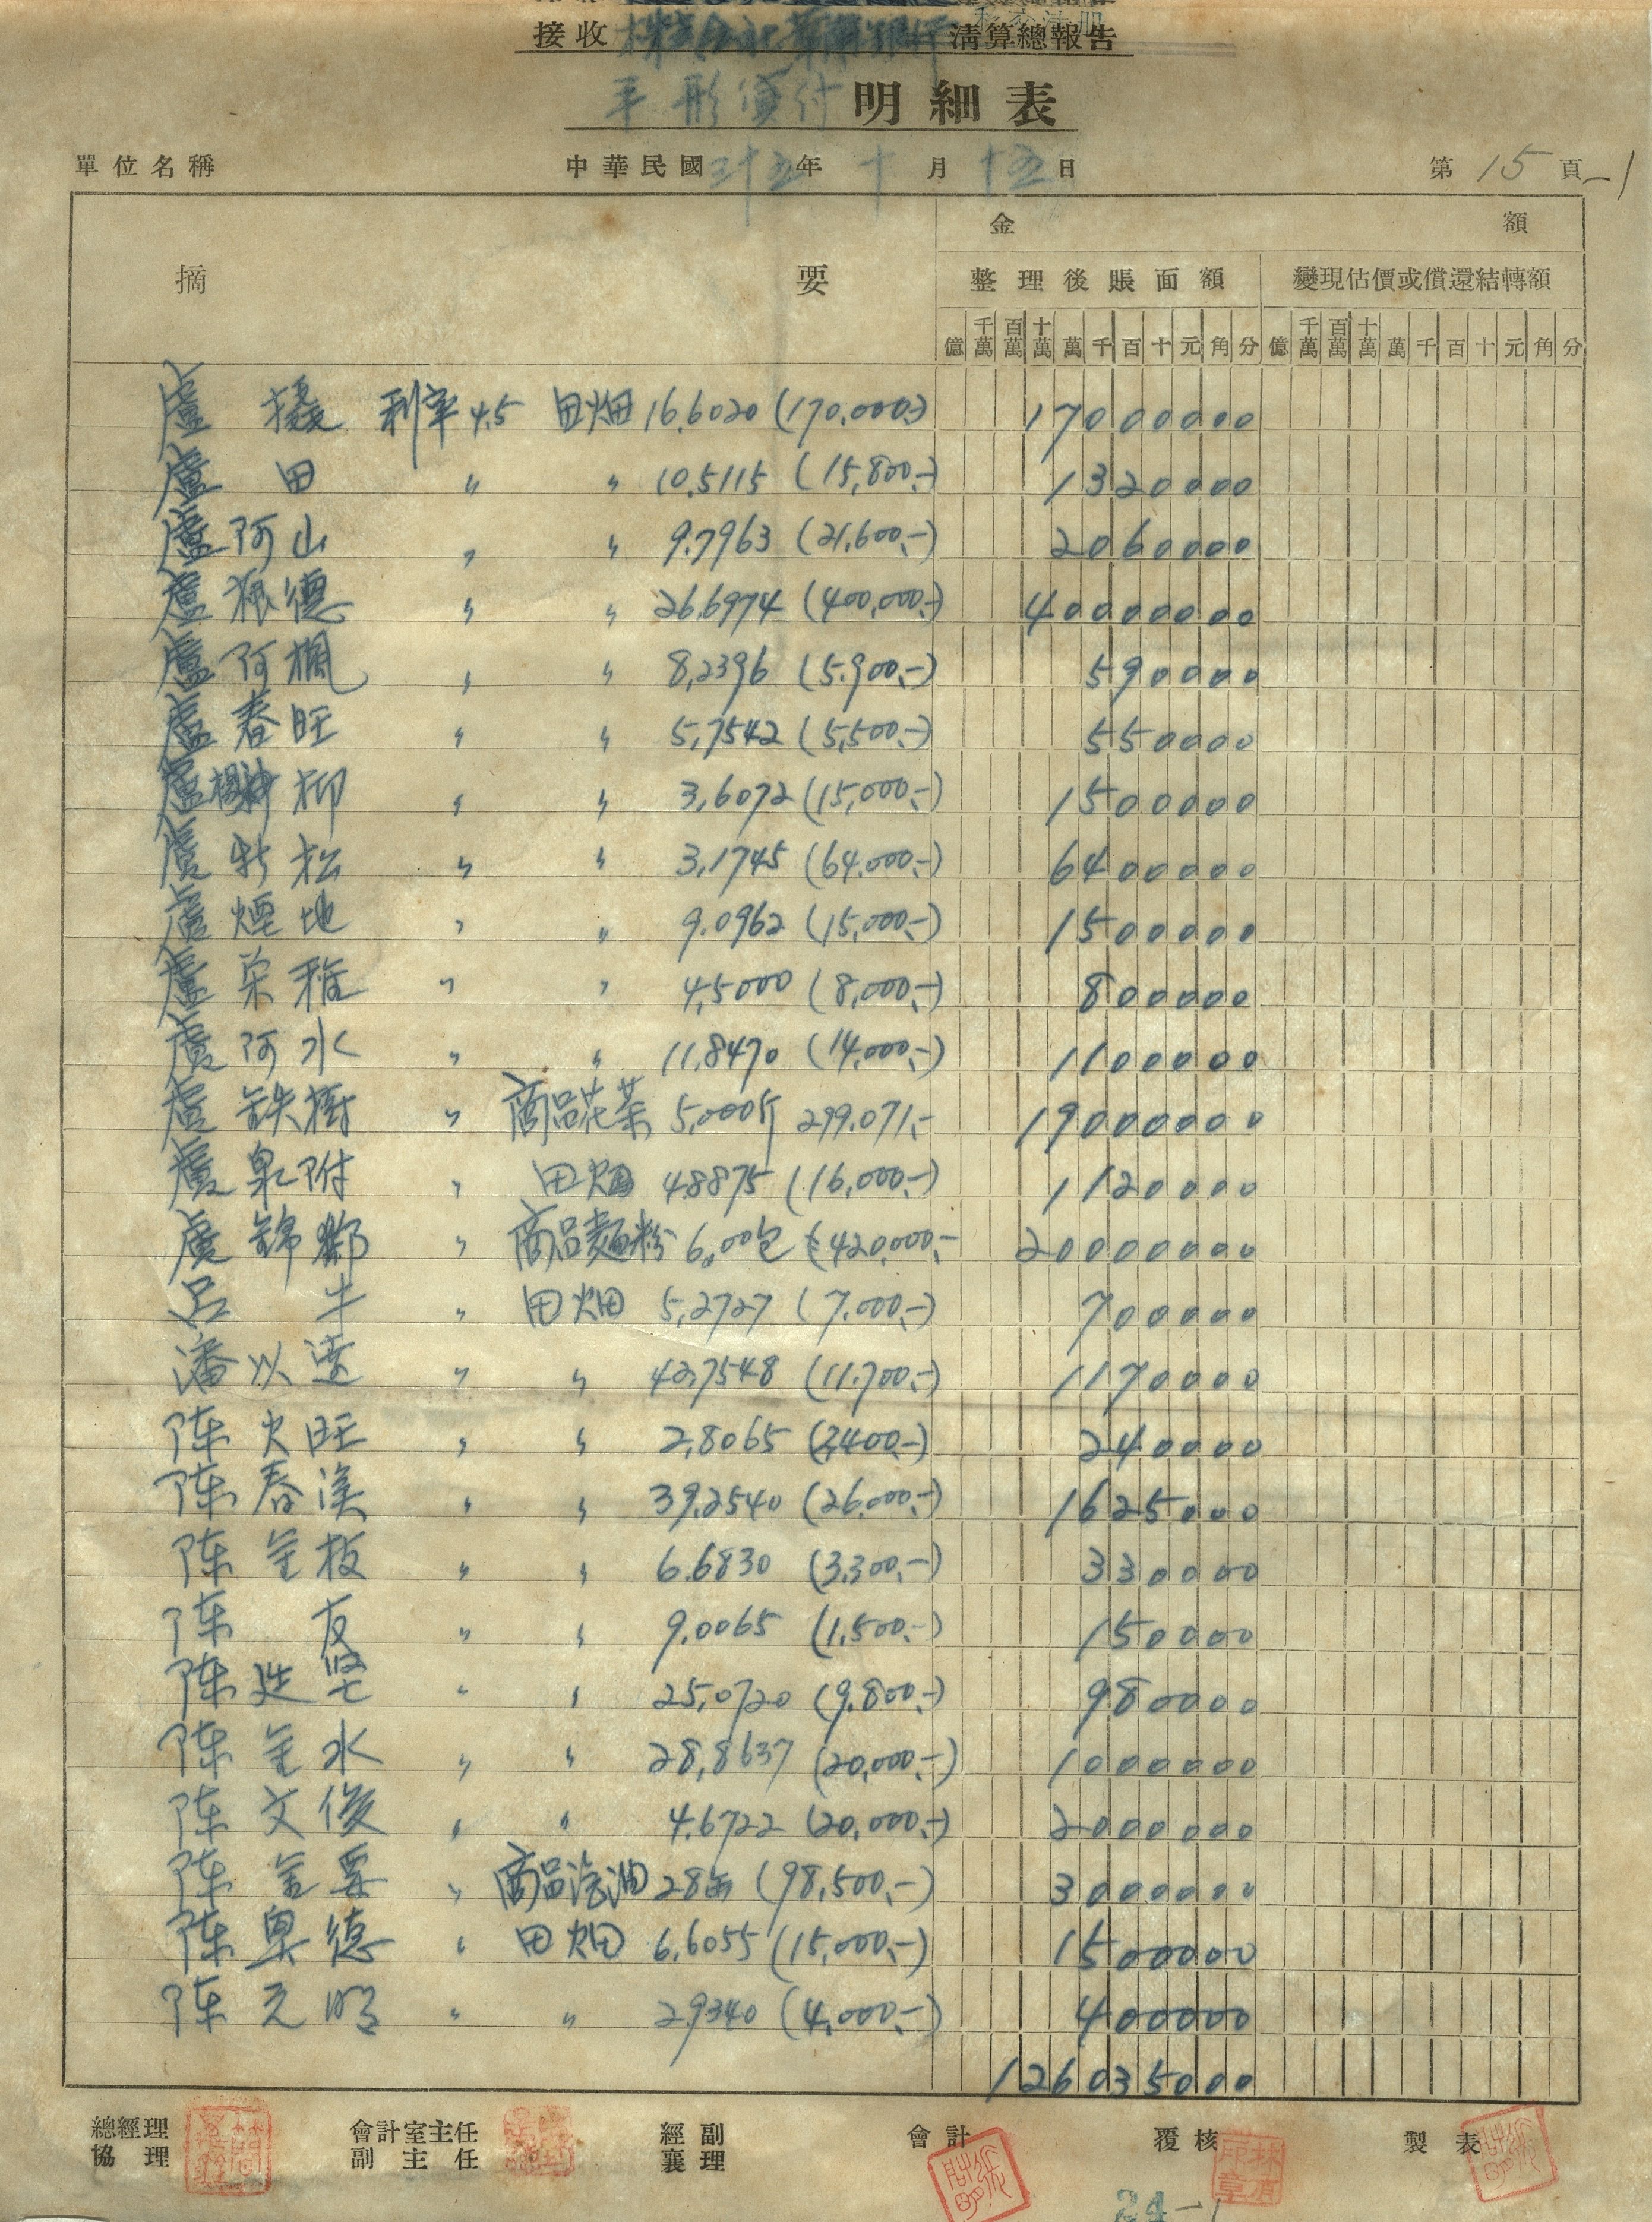 接收 株式会社華南銀行 清算總報告
手形貸付 明細表
單位名稱 中華民國三十五年十月十五日 第15頁-1
摘要 金額
整理後賬面額 變現估價或償還結轉額
億 千萬 百萬 十萬 萬 千 百 十 元 角 分 億 千萬 百萬 十萬 萬 千 百 十 元 角 分
盧 利率4.5 田畑 16.6020 (170,000.-) 17000000
盧田 〃 〃 10.5115 (15,800.-) 1320000
盧阿山 〃 〃 9.7963 (21,600.-) 2060000
盧根德 〃 〃 26.6974 (400,000.-) 40000000
盧阿楓 〃 〃 8,2396 (5.900.-) 590000
盧春旺 〃 〃 5,7542 (5,500.-) 550000
盧 柳 〃 〃 3,6072 (15,000.-) 1500000
盧新松 〃 〃 3,1745 (64,000.-) 6400000
盧煙地 〃 〃 9.0962 (15,000.-) 1500000
盧栄稚 〃 〃 4,5000 (8,000.-) 800000
盧阿水 〃 〃 11.8470 (14,000.-) 1100000
盧鉄樹 〃 商品花茶 5,000斤 299.071.- 19000000
盧泉附 〃 田畑 4.8875 (16,000.-) 1120000
盧錦鄉 〃 商品麵粉 6,00包 (420,000.- 20000000
呂牛 〃 田畑 5,2727 (7.000.-) 700000
潘以遠 〃 〃 42,7548 (11.700.-) 1170000
陈火旺 〃 〃 2,8065 (2,400.-) 240000
陈春溪 〃 〃 39.2540 (26.000.-) 1625000
陈金枝 〃 〃 6.6830 (3.300.-) 330000
陈友 〃 〃 9.0065 (1,500.-) 150000
陈廷堅 〃 〃 25,0720 (9.800.-) 980000
陈金水 〃 〃 28,8637 (20,000.-) 1000000
陈文俊 〃 〃 4.6722 (20,000.-) 2000000
陈金 〃 商品汽油 28缶 (98,500.-) 3000000
陈奥德 〃 田畑 6,6055 (15,000.-) 1500000
陈元明 〃 〃 29340 (4,000.-) 400000
126035000
總經理 會計室主任 經副 會計 覆核 製表
協理 副主任 襄理
24-1